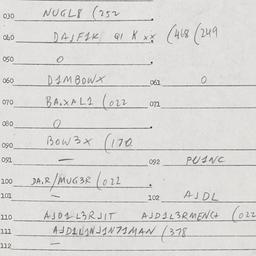 030 NUGL8 (252
040 DAJF1K 91 K xx (468 (249
050 0
060 D1MBOWX 061 0
070 BA.XAL1 (022 071
080 0
090 BOW3X (170
091 — 092 PU1NC
100 DA.R/MUG3R (022
101 — 102 AJDL
110 AJD1L3RJIT AJD1L3RMENG (022
111 AJD1L1NJ1N71MAN (378
112 —